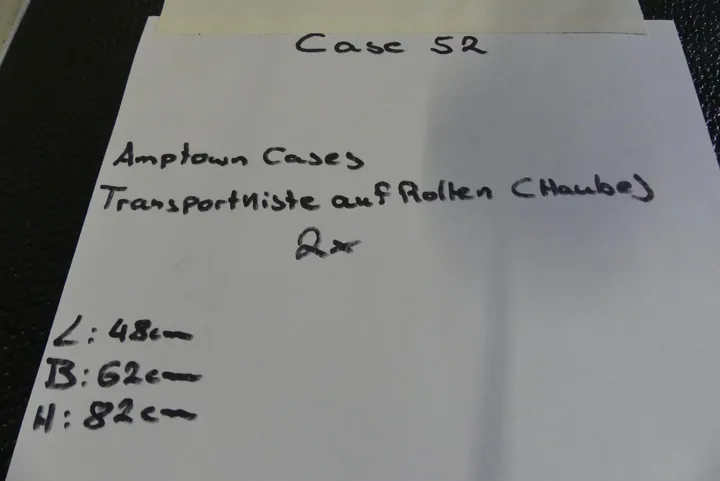 Case 52
Amptown Cases
Transportkiste auf Rollen (Haube)
2x
L: 48cm
B: 62cm
H: 82cm